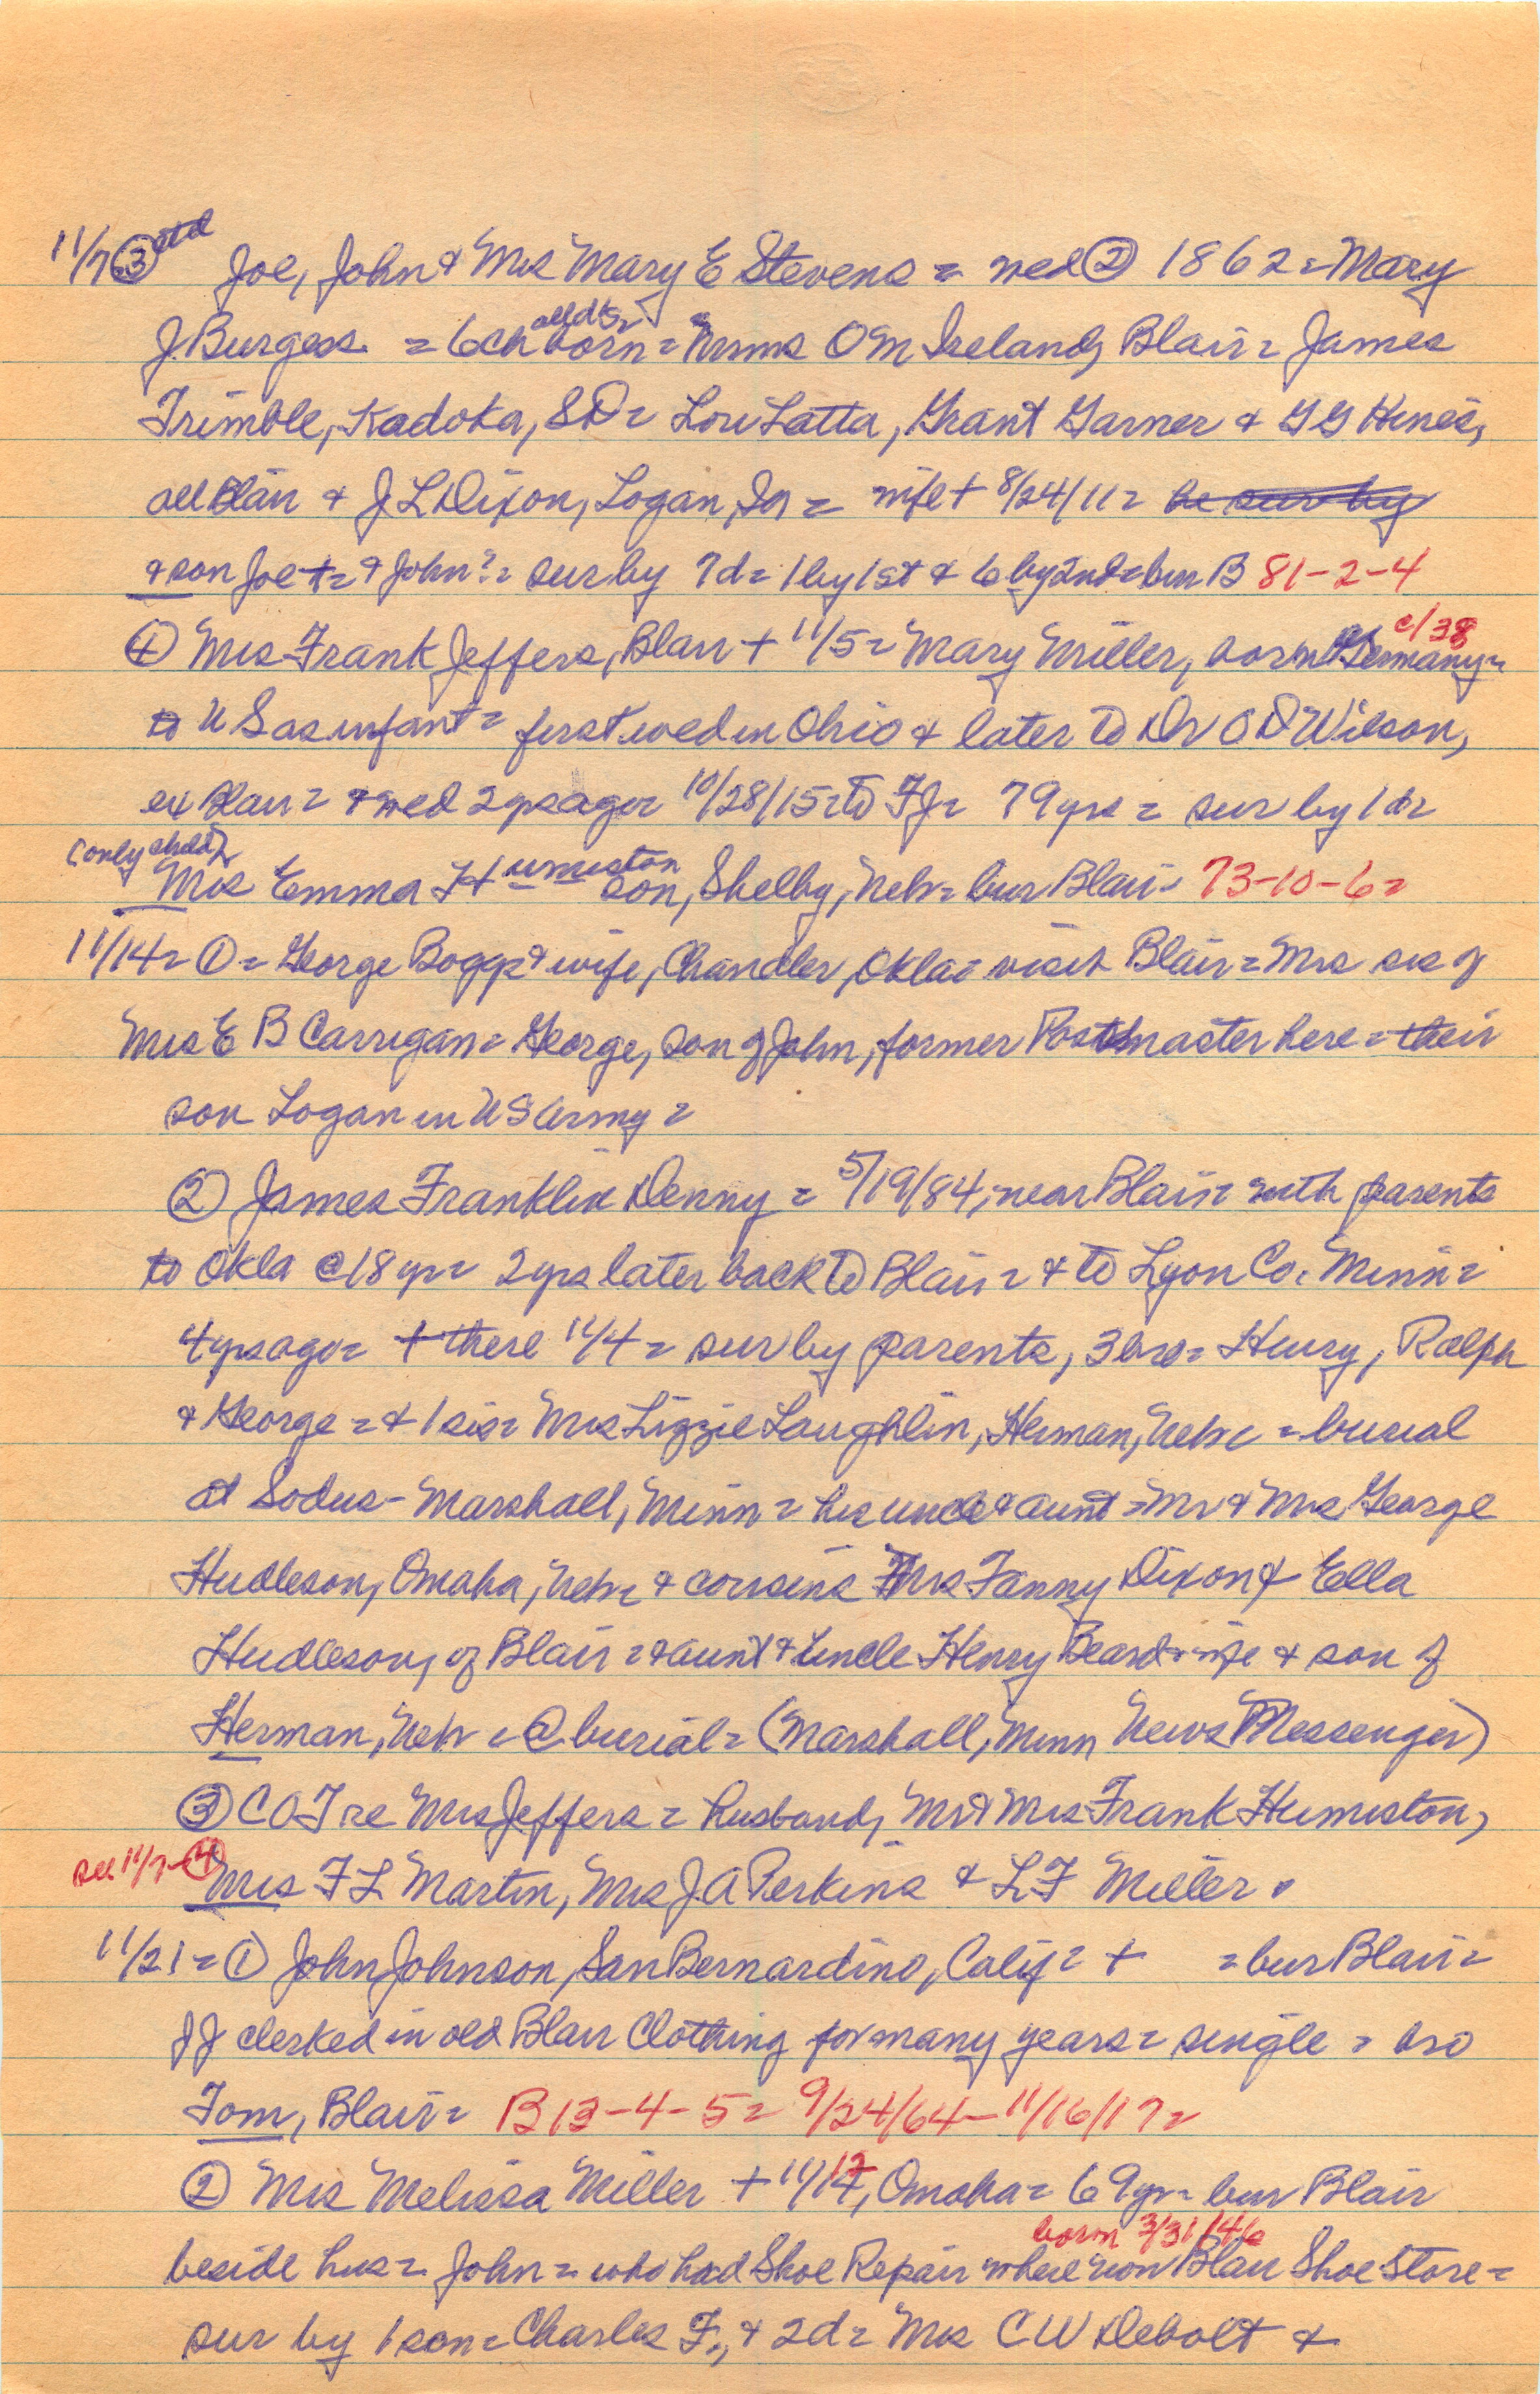 11/7 ③ ctd Joe, John & Mrs Mary E Stevens = wed ② 1862 = Mary
J. Burgess = 6 ch all ds born = Mmms O M Ireland, Blair = James
Trimble, Kadoka, SD = Lou Latta, Grant Garner & G G Hines,
all Blair & J L Dixon, Logan, Ia = wife + 8/24/11 = he sur by
& son Joe + = & John? = sur by 7d = 1 by 1st & 6 by 2nd = bur B 81-2-4
④ Mrs Frank Jeffers, Blair + 11/5 = Mary Miller, born Germany = c/38
to U S as infant = first wed in Ohio & later to Dr O D Wilson,
ex Blair = & wed 2 yrs ago = 10/28/15 = to FJ = 79 yrs = sur by 1 d =
(only child)
Mrs Emma Humiston son, Shelby, Neb = bur Blair = 73-10-6 =
11/14 = ① = George Boggs & wife, Chandler, Okla = visit Blair = Mrs sis of
Mrs E B Carrigan = George, son of John, former Postmaster here = their
son Logan in U S Army =
② James Franklin Denny = 5/19/84, near Blair = with parents
to Okla @ 18 yr = 2 yrs later back to Blair = & to Lyon Co. Minn =
4 yrs ago = + there 11/4 = sur by parents, 3 bro = Henry, Ralph
& George = & 1 sis = Mrs Lizzie Laughlin, Herman, Nebr = burial
at Sodus - Marshall, Minn = his uncle & aunt = Mr & Mrs George
Hudleson, Omaha, Nebr & cousins Mrs Fanny Dixon & Ella
Hudleson, of Blair = & aunt & uncle Henry Beard & wife & son of
Herman, Neb = @ burial = (Marshall, Minn News Messenger)
③ C O T re Mrs Jeffers = husband, Mr & Mrs Frank Humiston,
see 11/7-④ Mrs F L Martin, Mrs J A Perkins & L F Miller.
11/21 = ① John Johnson, San Bernardino, Calif = + = bur Blair =
JJ clerked in old Blair Clothing for many years = single = bro
Tom, Blair = B 13-4-5 = 9/24/64 - 11/16/17 =
② Mrs Melissa Miller + 11/17, Omaha = 69 yr = bur Blair
born 3/31/48
beside hus = John = who had Shoe Repair where now Blair Shoe Store =
sur by 1 son = Charles F., & 2d = Mrs C W Debolt &